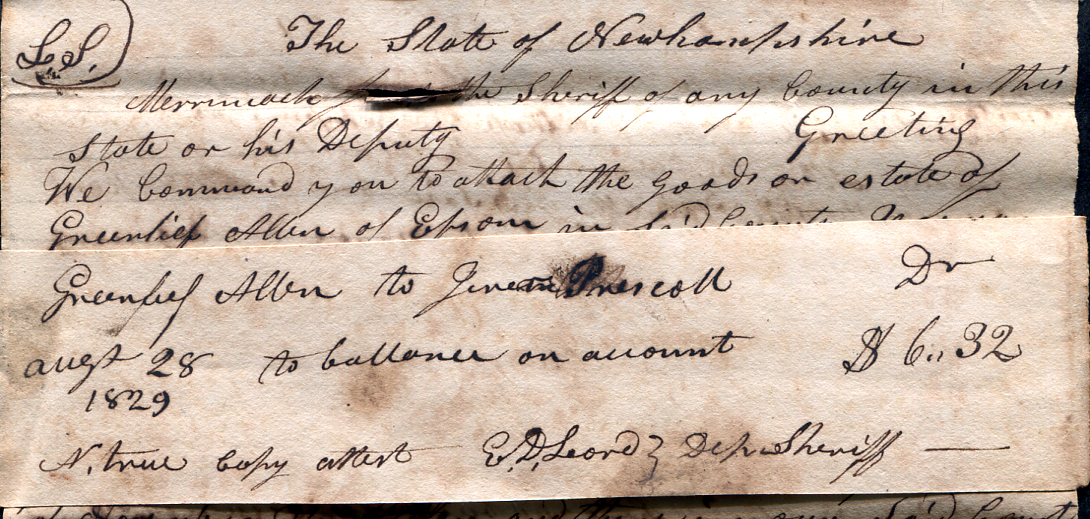 L.S.
The State of Newhampshire
Merrimack the Sheriff of any County in this
State or his Deputy Greeting
We Command you to attach the goods or estate of
Greenlief Allen of Epsom in said County
Greenlief Allen to Prescott Dr
augst 28 to ballance on account $ 6..32
1829
A, true Copy attest E, D, Dep Sheriff
said